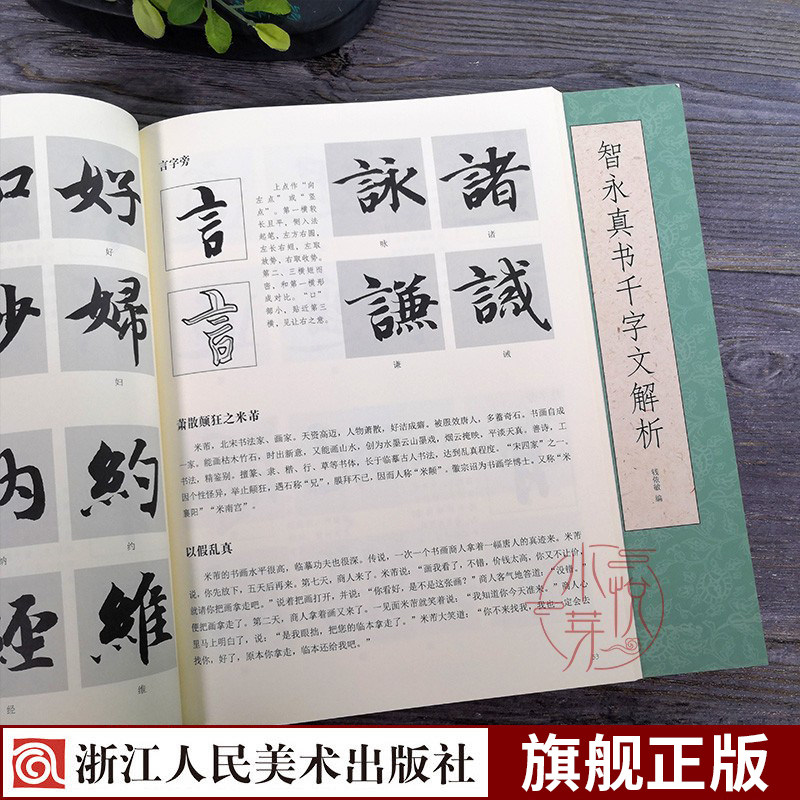 口
好
好
妇
婦
约
約
纳
内
经
經
维
維
言字旁
言
言
上点作“向
左点”或“竖
点”。第一横较
长且平，侧入法
起笔，左方右圆，
左长右短，左取
放势，右取收势。
第二、三横短而
密，和第一横形
成对比。“口”
部小，贴近第三
横，见让右之意。
詠
諸
咏
诸
謙
誡
谦
诫
萧散颠狂之米芾
米芾，北宋书法家、画家。天资高迈，人物萧散，好洁成癖，被服效唐人，多蓄奇石。书画自成
一家。能画枯木竹石，时出新意，又能画山水，创为水墨云山墨戏，烟云掩映，平淡天真。善诗，工
书法，精鉴别。擅篆、隶、楷、行、草等书体，长于临摹古人书法，达到乱真程度。“宋四家”之一。
因个性怪异，举止颠狂，遇石称“兄”，膜拜不已，因而人称“米颠”。徽宗诏为书画学博士，又称“米
襄阳”“米南宫”。
以假乱真
米芾的书画水平很高，临摹功夫也很深。传说，一次一个书画商人拿着一幅唐人的真迹来。米芾
说，你先放下，五天后再来。第七天，商人来了。米芾说：“画我看了，不错，价钱太高，你又不让价，
就请你把画拿走吧。”说着把画打开，并说：“你看好，是不是这张画？”商人客气地答道：“没错。”
便把画拿走了。第二天，商人拿着画又来了。一见面米芾就笑着说：“我知道你今天准来。”商人心
里马上明白了，说：“是我眼拙，把您的临本拿走了。”米芾大笑道：“你不来找我，我也一定会去
找你，好了，原本你拿走，临本还给我吧。”
53
智永真书千字文解析
钱依敏 编
小悦芽
浙江人民美术出版社
旗舰正版